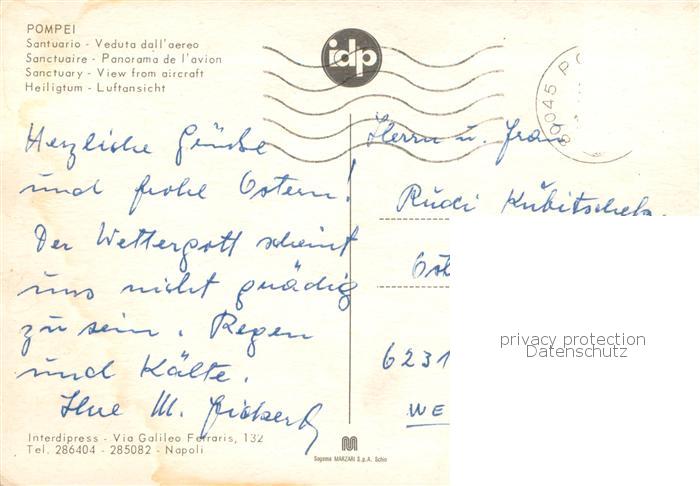 POMPEI
Santuario - Veduta dall'aereo
Sanctuaire - Panorama de l'avion
Sanctuary - View from aircraft
Heiligtum - Luftansicht
idp
80045 PO
Herzliche Grüsse
und frohe Ostern!
Der Wettergott scheint
uns nicht gnädig
zu sein. Regen
und Kälte.
Ihre M.
Herrn u. Frau
Rudi Kubitschek
6231
WE
privacy protection
Datenschutz
Interdipress - Via Galileo Ferraris, 132
Tel. 286404 - 285082 - Napoli
Sagoma MARZARI S.p.A. Schio